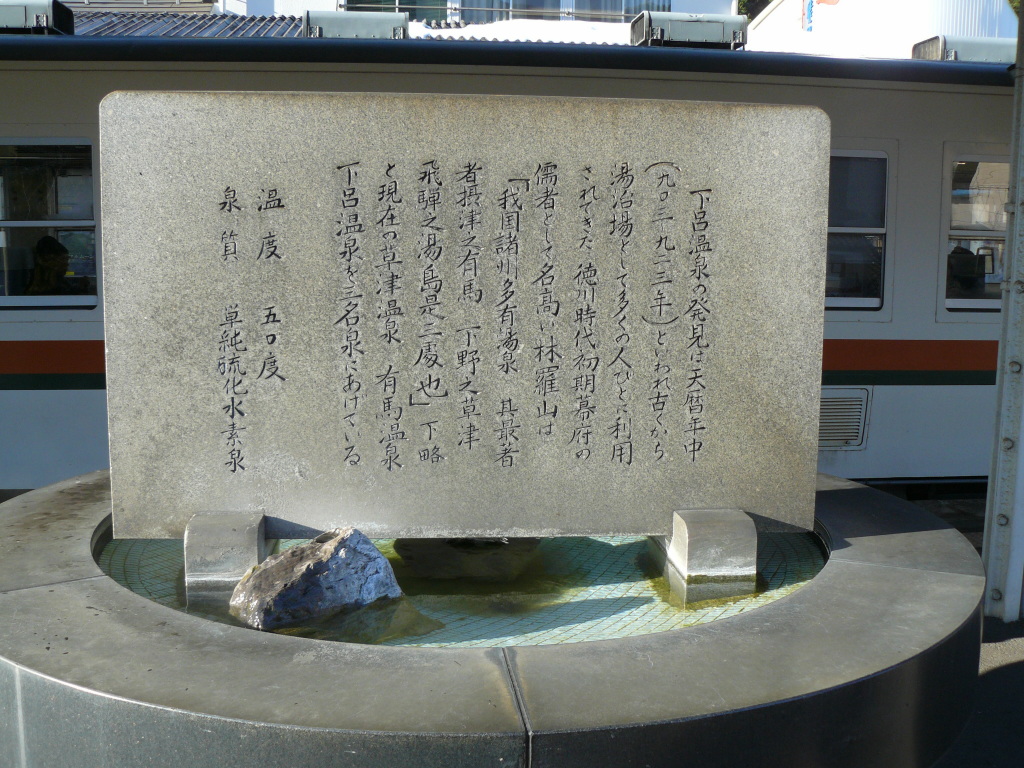 下呂温泉の発見は天暦年中
(九〇三―九二三年)といわれ古くから
湯治場として多くの人びとに利用
されてきた 徳川時代初期幕府の
儒者として名高い林羅山は
「我国諸州多有湯泉 其最著
者摂津之有馬 下野之草津
飛騨之湯島是三處也」下略
と現在の草津温泉 有馬温泉
下呂温泉を三名泉にあげている
温度 五〇度
泉質 単純硫化水素泉